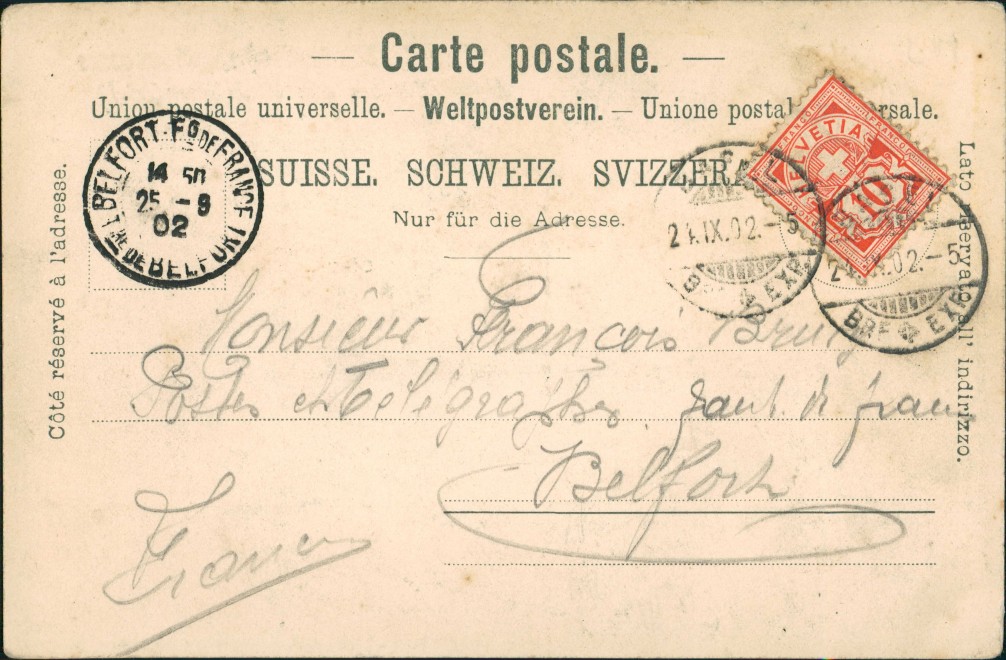 Carte postale.
Union postale universelle. — Weltpostverein. — Unione postal ersale.
SUISSE. SCHWEIZ. SVIZZERA
Nur für die Adresse.
Côté réservé à l'adresse.
Lato riservato all' indirizzo.
BELFORT. Fg DE FRANCE
14 50
25 - 9
02
TRE DE BELFORT
FRANCO FRANCO
HELVETIA
10
IX.02.-5
EXP.
IX.02.-5
BRF EXP.
Monsieur François
Postes et Telegraphes faub. de fran
Belfort
France